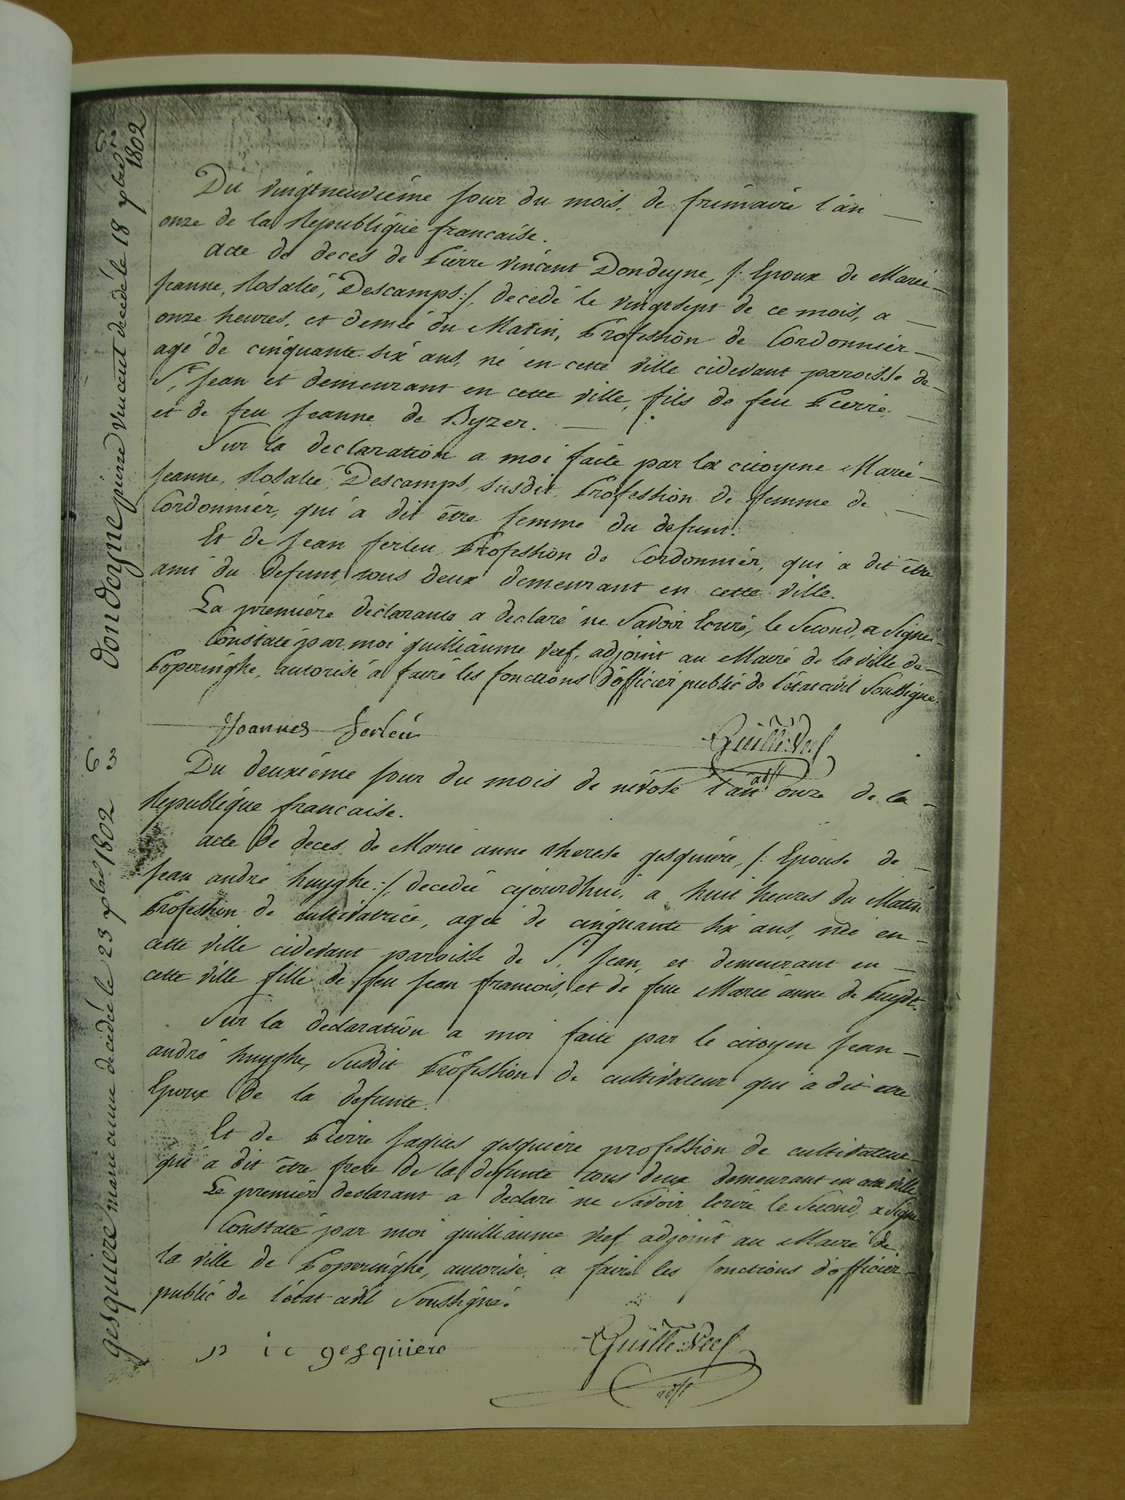 Du vingtneuvième jour du mois de frimaire l'an
onze de la Republique francaise.
acte de deces de Pierre Vincent Dondeyne, /: Epoux de Marie
Jeanne, Rosalie, Descamps :/ decedé le vingtsept de ce mois, a
onze heures, et demie du Matin, Profession de Cordonnier
agé de cinquante six ans, né en cette ville cidevant paroisse de
St Jean et demeurant en cette ville, fils de feu Pierre
et de feu Jeanne de Byzer.
Sur la declaration a moi faite par la citoyene Marie
Jeanne, Rosalie, Descamps, susdit, Profession de femme de
Cordonnier, qui a dit être femme du defunt.
Et de Jean ferleu, Profession de Cordonnier, qui a dit être
ami du defunt, tous deux demeurant en cette ville.
La première declarante a declaré ne Savoir Ecrire, le Second, a Signé
Constaté par moi guilliaume Vef, adjoint au Maire de la ville de
Poperinghe, autorisé a faire les fonctions d'officier public de l'état civil Soussigné.
Joannes ferleu
Guille Vef
adjt
Du deuxième jour du mois de nivôse l'an onze de la
Republique francaise.
acte de deces de Marie anne therese gesquiere, /: Epouse de
Jean andré huyghe :/ decedée ajourdhui, a huit heures du Matin
Profession de cultivatrice, agée de cinquante six ans, née en
cette ville cidevant paroisse de St Jean, et demeurant en
cette ville fille de feu Jean francois, et de feue Marie anne de huydt.
Sur la declaration a moi faite par le citoyen Jean
andré huyghe, Susdit Profession de cultivateur qui a dit etre
Epoux de la defunte.
Et de Pierre Jaques gesquiere profession de cultivateur
qui a dit être frere de la defunte tous deux demeurant en cette ville
Le premier declarant a declaré ne Savoir Ecrire le Second, a Signé
Constaté par moi guilliaume Vef adjoint au Maire de
la ville de Poperinghe, autorisé, a faire les fonctions d'officier
public de l'état civil Soussigné.
p i c gesquiere
Guille Vef
adjt
dondeyne pierre vincent decede le 18 xbre 1802
gesquiere marie anne decédée le 23 xbre 1802